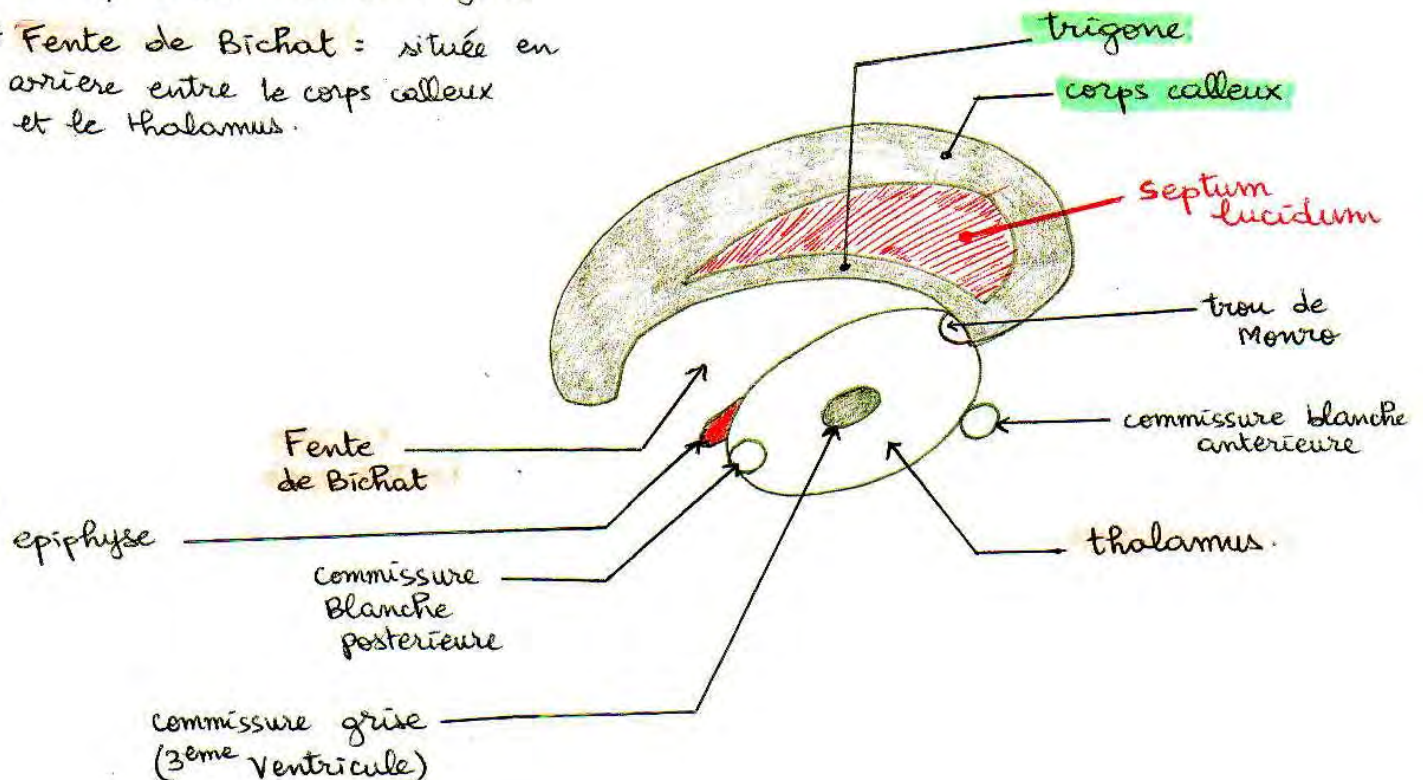 Fente de Bichat : située en
arrière entre le corps calleux
et le thalamus.
trigone
corps calleux
septum
lucidum
trou de
Monro
commissure blanche
antérieure
thalamus.
Fente
de Bichat
epiphyse
commissure
Blanche
posterieure
commissure grise
(3eme Ventricule)